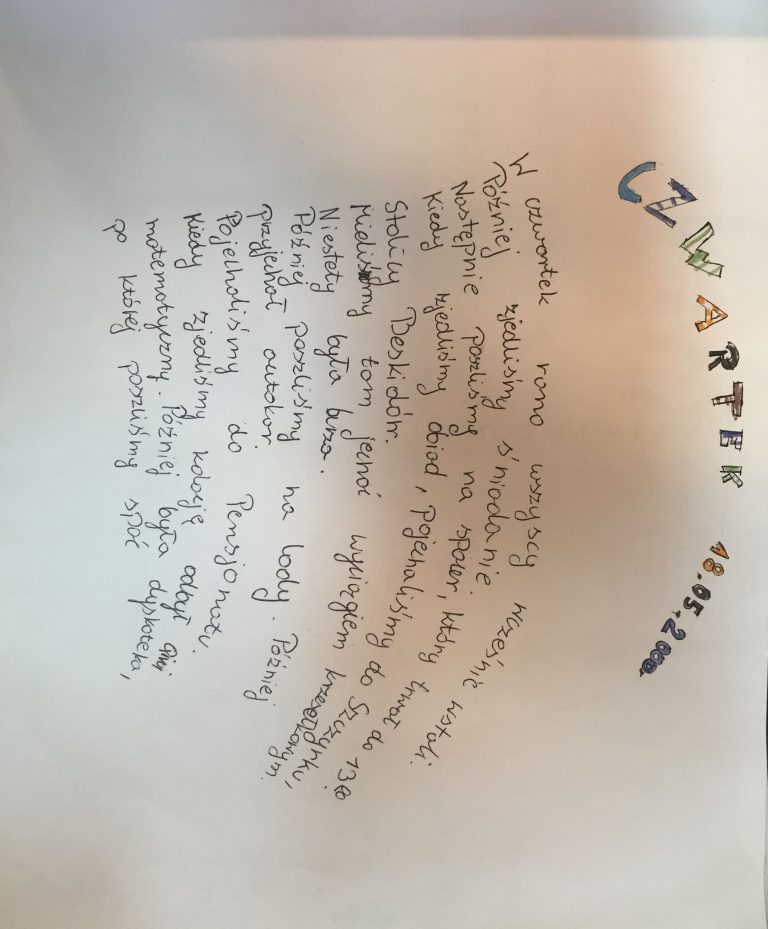 CZWARTEK 18.05.2000
W czwartek rano wszyscy wcześnie wstali.
Później zjedliśmy śniadanie.
Następnie poszliśmy na spacer, który trwał do 13.00
Kiedy zjedliśmy obiad, Pojechaliśmy do Szczyrku,
Stolicy Beskidów.
Mieliśmy tam jechać wyciągiem krzesełkowym.
Niestety była burza.
Później poszliśmy na lody. Później
przyjechał autokar
Pojechaliśmy do Pensjonatu.
Kiedy zjedliśmy kolację odbył
matematyczny. Później była dyskoteka,
po której poszliśmy spać